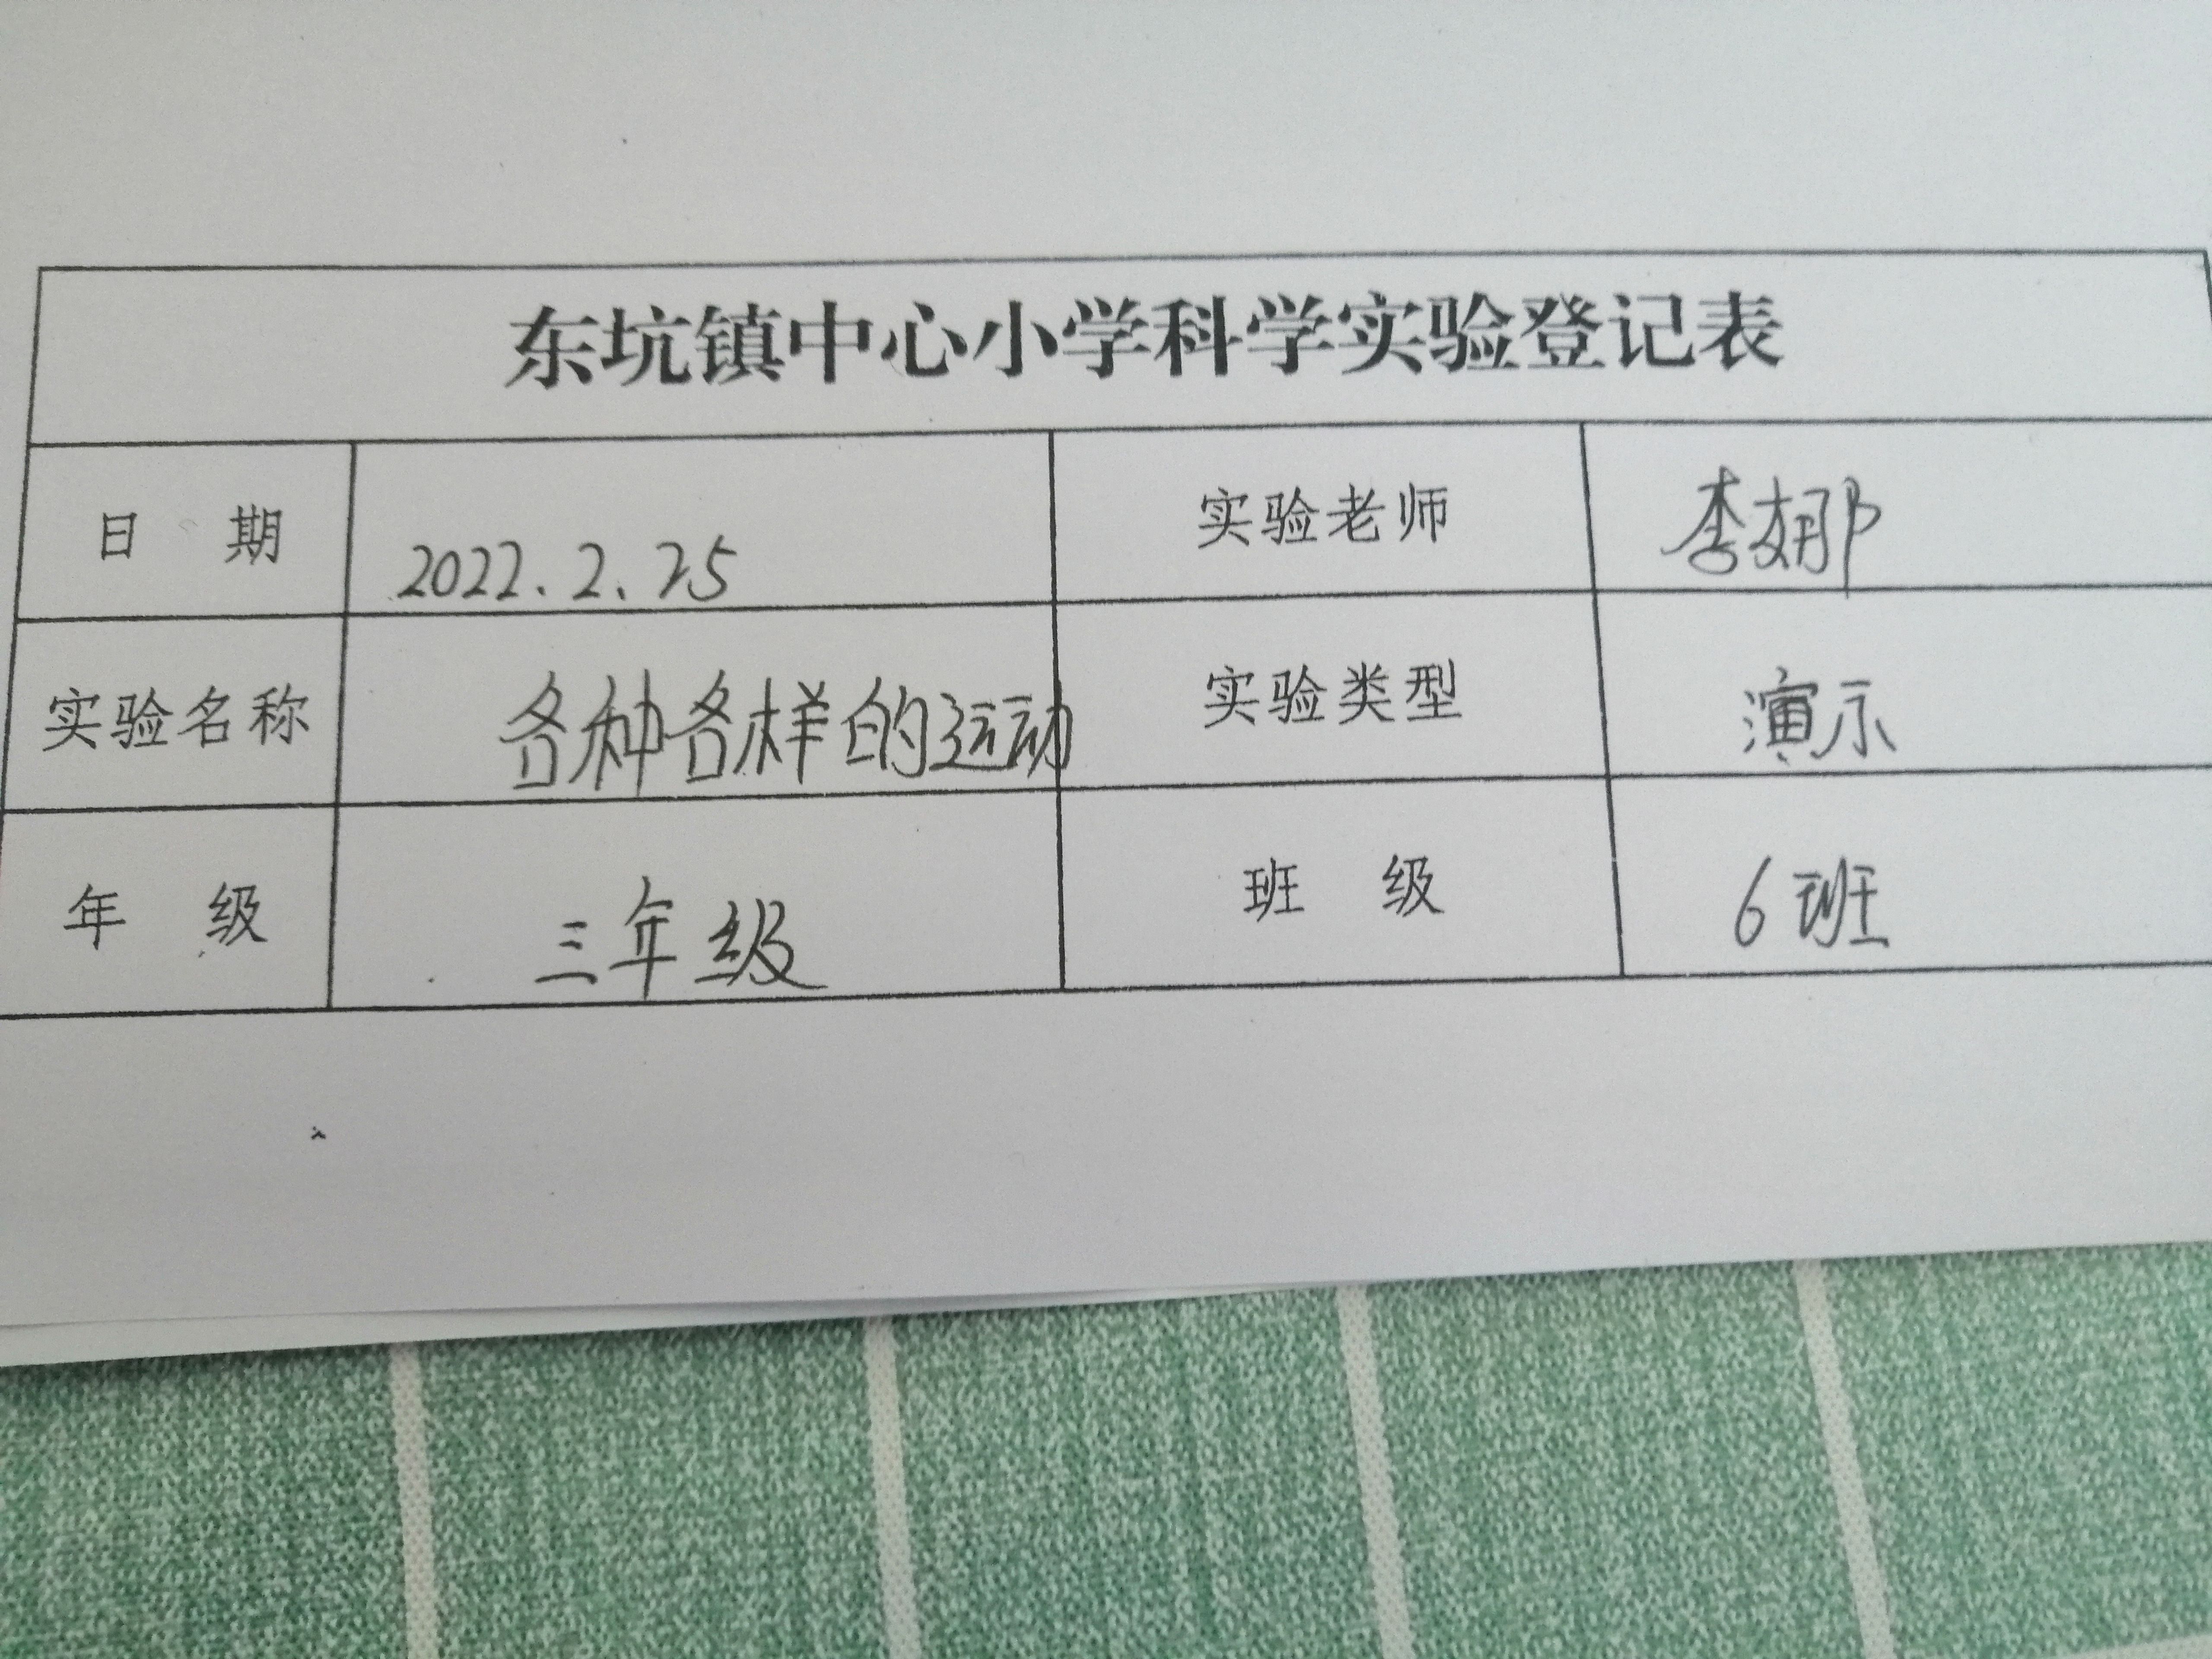 东坑镇中心小学科学实验登记表
日期 2022.2.25 实验老师 李娜
实验名称 各种各样的运动 实验类型 演示
年级 三年级 班级 6班